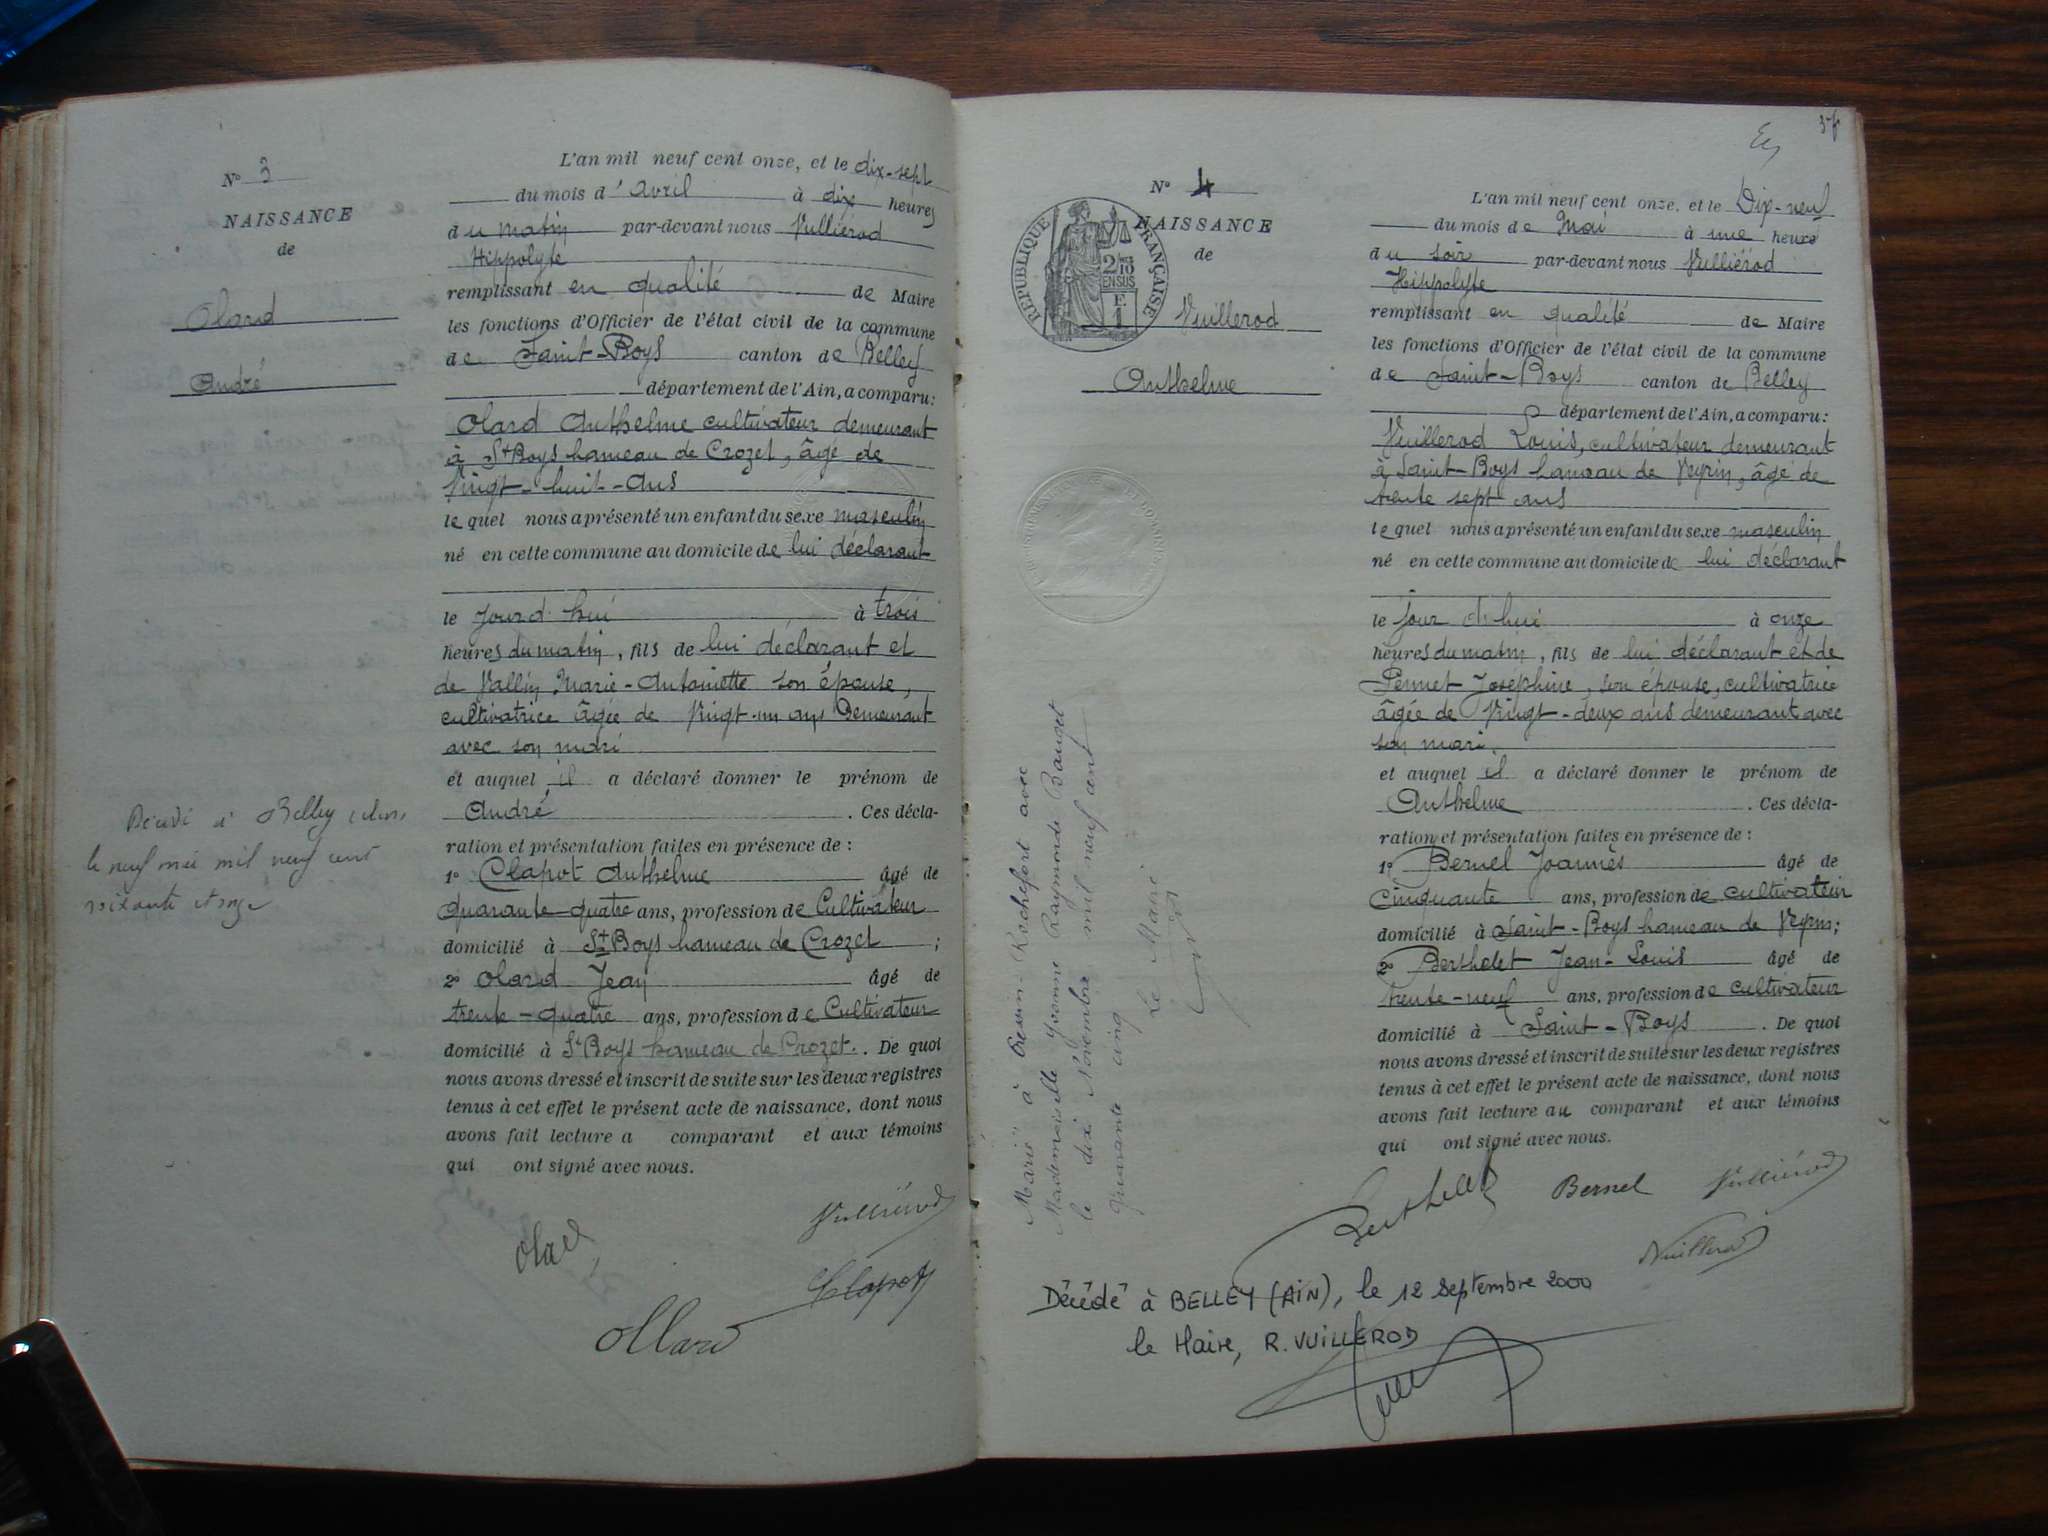 N° 3
NAISSANCE
de
Olard
André
L'an mil neuf cent onze, et le dix-sept
du mois d'avril à dix heures
du matin par-devant nous Vulliérod
Hippolyte
remplissant en qualité de Maire
les fonctions d'Officier de l'état civil de la commune
de Saint-Boys canton de Belley
département de l'Ain, a comparu:
Olard Anthelme cultivateur demeurant
à St Boys hameau de Crozet, âgé de
Vingt-huit-ans
le quel nous a présenté un enfant du sexe masculin
né en cette commune au domicile de lui déclarant
le jourd'hui à trois
heures du matin, fils de lui déclarant et
de Vallin Marie-Antoinette son épouse,
cultivatrice âgée de Vingt-un ans Demeurant
avec son mari
et auquel il a déclaré donner le prénom de
André. Ces décla-
ration et présentation faites en présence de :
1° Clapot Anthelme âgé de
Quarante-quatre ans, profession de Cultivateur
domicilié à St Boys hameau de Crozet ;
2° Olard Jean âgé de
trente-quatre ans, profession de Cultivateur
domicilié à St Boys hameau de Crozet. . De quoi
nous avons dressé et inscrit de suite sur les deux registres
tenus à cet effet le présent acte de naissance, dont nous
avons fait lecture a comparant et aux témoins
qui ont signé avec nous.
Décédé à Belley (Ain)
le neuf mai mil neuf cent
soixante et onze
Vulliérod
Olard
Clapot
Ollard
N° 4
NAISSANCE
de
RÉPUBLIQUE FRANÇAISE
2/10
EN SUS
F.
1
Vuillerod
Anthelme
L'an mil neuf cent onze, et le Dix-neuf
du mois de Mai à une heure
du soir par-devant nous Vulliérod
Hippolyte
remplissant en qualité de Maire
les fonctions d'Officier de l'état civil de la commune
de Saint-Boys canton de Belley
département de l'Ain, a comparu:
Vuillerod Louis, cultivateur demeurant
à Saint-Boys hameau de Veyrin, âgé de
trente sept ans
le quel nous a présenté un enfant du sexe masculin
né en cette commune au domicile de lui déclarant
le jour d'hui à onze
heures du matin, fils de lui déclarant et de
Pennet Joséphine, son épouse, cultivatrice
âgée de Vingt-deux ans demeurant avec
son mari.
et auquel il a déclaré donner le prénom de
Anthelme. Ces décla-
ration et présentation faites en présence de :
1° Bernel Joannès âgé de
Cinquante ans, profession de cultivateur
domicilié à Saint-Boys hameau de Veyrin;
2° Berthelet Jean-Louis âgé de
trente-neuf ans, profession de cultivateur
domicilié à Saint-Boys. De quoi
nous avons dressé et inscrit de suite sur les deux registres
tenus à cet effet le présent acte de naissance, dont nous
avons fait lecture au comparant et aux témoins
qui ont signé avec nous.
Marié à Pressin-Rochefort avec
Mademoiselle Yvonne Raymonde Banget
le dix Novembre mil neuf cent
Quarante cinq
Le Maire
Berthelet Bernel Vulliérod
Vuillerod
Décédé à BELLEY (AIN), le 12 Septembre 2000
le Maire, R. VUILLEROD